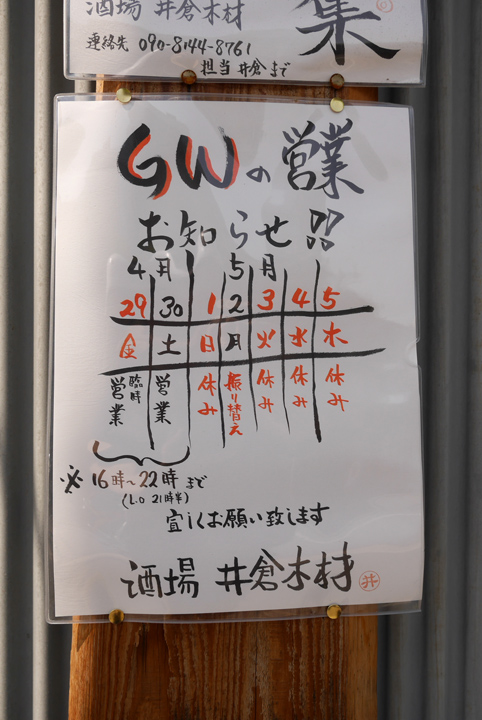 酒場 井倉木材
集
連絡先 090-8144-8761
担当 井倉まで
GWの営業
お知らせ!!
4月 5月
29 30 1 2 3 4 5
金 土 日 月 火 水 木
臨時営業 営業 休み 振り替え 休み 休み 休み
※ 16時〜22時まで
(L.O 21時半)
宜しくお願い致します
酒場 井倉木材 井